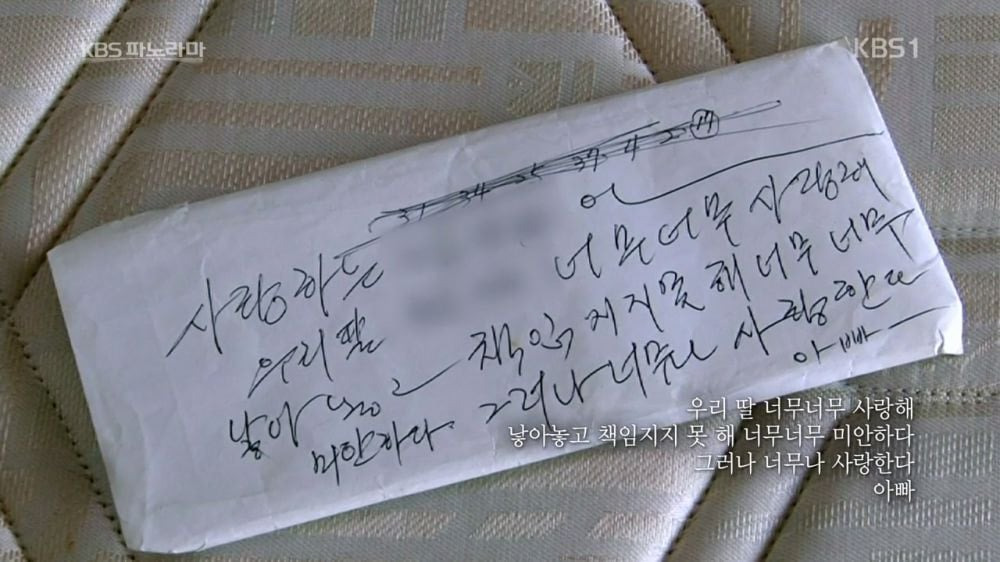 KBS 파노라마
KBS1
사랑하는
우리 딸 너무너무 사랑해
낳아 놓고 책임지지못해 너무너무
미안하다. 그러나 너무나 사랑한다
아빠
우리 딸 너무너무 사랑해
낳아놓고 책임지지 못 해 너무너무 미안하다
그러나 너무나 사랑한다
아빠